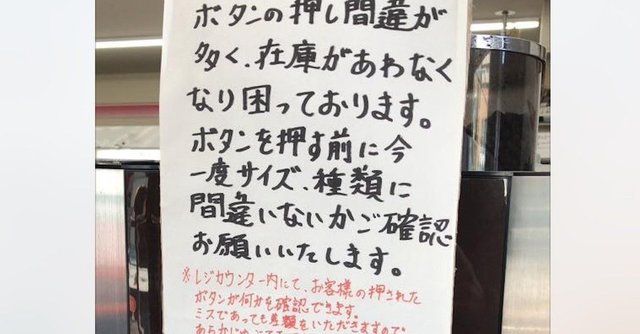 ボタンの押し間違が
多く、在庫があわなく
なり困っております。
ボタンを押す前に今
一度サイズ、種類に
間違いないかご確認
お願いいたします。
※レジカウンター内にて、お客様の押された
ボタンが何かを確認できます。
ミスであっても差額をいただきますので